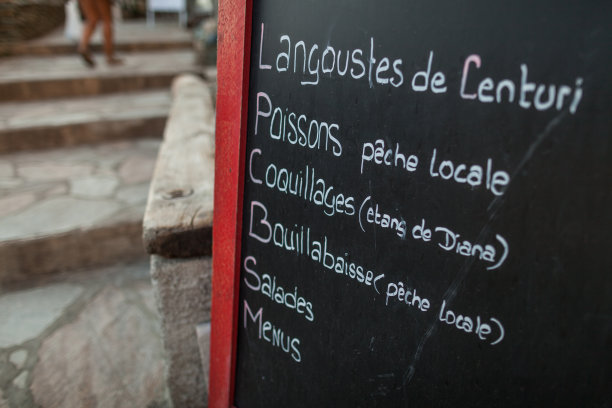 Langoustes de Centuri
Poissons pêche locale
Coquillages (etang de Diana)
Bouillabaisse (pêche locale)
Salades
Menus